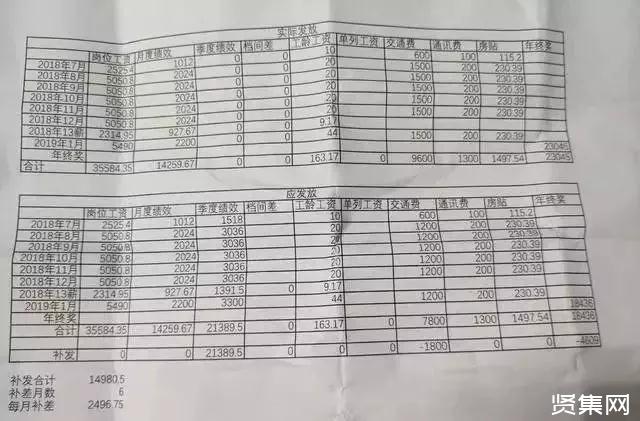 实际发放
岗位工资 月度绩效 季度绩效 档间差 工龄工资 单列工资 交通费 通讯费 房贴 年终奖
2018年7月 2525.4 1012 0 0 10 600 100 115.2
2018年8月 5050.8 2024 0 0 20 1500 200 230.39
2018年9月 5050.8 2024 0 0 20 1500 200 230.39
2018年10月 5050.8 2024 0 0 20 1500 200 230.39
2018年11月 5050.8 2024 0 0 20 1500 200 230.39
2018年12月 5050.8 2024 0 0 20 1500 200 230.39
2018年13薪 2314.95 927.67 0 0 9.17
2019年1月 5490 2200 0 0 44 1500 200 230.39
年终奖 23045
合计 35584.35 14259.67 0 0 163.17 0 9600 1300 1497.54 23045
应发放
岗位工资 月度绩效 季度绩效 档间差 工龄工资 单列工资 交通费 通讯费 房贴 年终奖
2018年7月 2525.4 1012 1518 10 600 100 115.2
2018年8月 5050.8 2024 3036 20 1200 200 230.39
2018年9月 5050.8 2024 3036 20 1200 200 230.39
2018年10月 5050.8 2024 3036 20 1200 200 230.39
2018年11月 5050.8 2024 3036 20 1200 200 230.39
2018年12月 5050.8 2024 3036 20 1200 200 230.39
2018年13薪 2314.95 927.67 1391.5 9.17
2019年1月 5490 2200 3300 44 1200 200 230.39
年终奖 18436
合计 35584.35 14259.67 21389.5 0 163.17 0 7800 1300 1497.54 18436
补发 0 0 21389.5 0 0 0 -1800 0 0 -4609
补发合计 14980.5
补差月数 6
每月补差 2496.75
贤集网